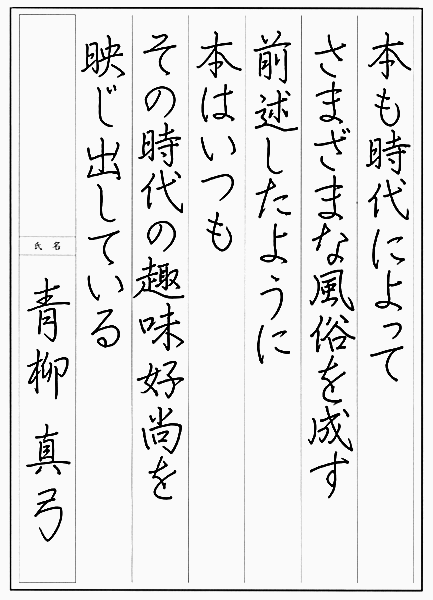 本も時代によって
さまざまな風俗を成す
前述したように
本はいつも
その時代の趣味好尚を
映じ出している
氏名
青柳 真弓